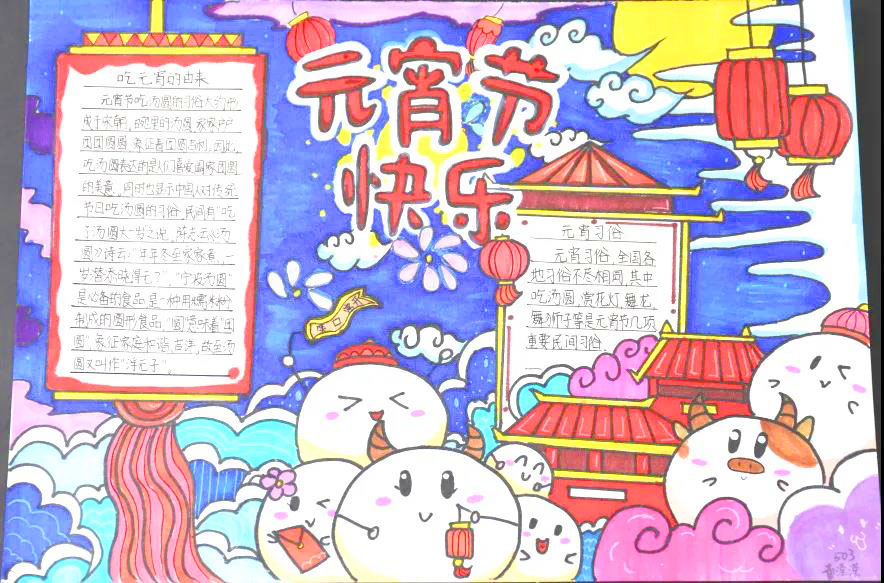 元宵节
快乐
吃元宵的由来
元宵节吃汤圆的习俗大约形
成于宋朝,的吧里的汤圆家家户户
团团圆圆,象征着团圆吉利,因此,
吃汤圆表达的是人们喜爱阖家团圆
的美意,同时也显示中国人对传统
节日吃汤圆的习俗,民间有“吃
了汤圆大一岁之说,
圆》诗云:“年年冬至家家煮,一
岁潜添晓得无?”,“宁波汤圆”
是必备的食品是一种用糯米粉
制成的圆形食品,“圆”意味着“团
圆”,象征家庭和谐、吉祥,故至汤
圆又叫作“浮元子”。
元宵习俗
元宵习俗,全国各
地习俗不尽相同,其中
吃汤圆、赏花灯、舞龙、
舞狮子等是元宵节几项
重要民间习俗
503